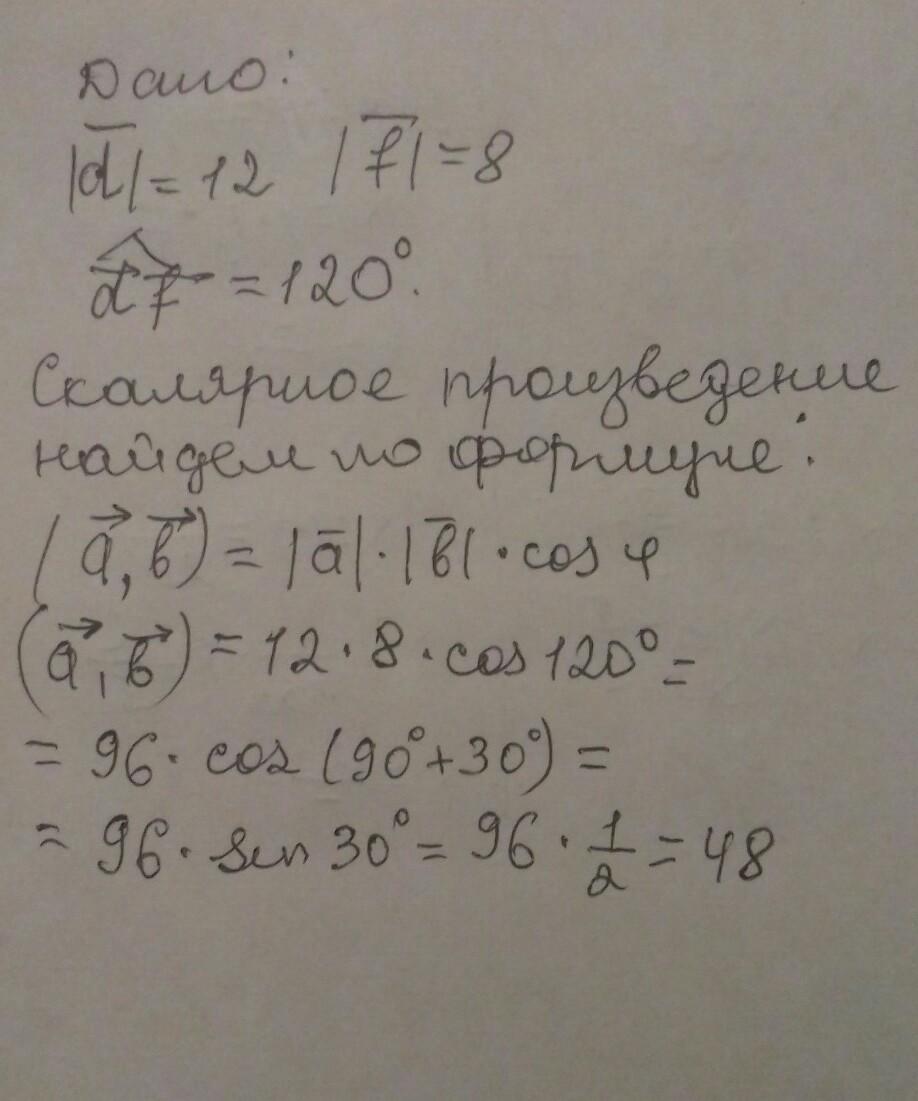 Дано:
|d̅| = 12 |f̅| = 8
d⃗f⃗ = 120°.
Скалярное произведение
найдем по формуле:
(a⃗, b⃗) = |a̅| · |b̅| · cos φ
(a⃗, b⃗) = 12 · 8 · cos 120° =
= 96 · cos (90° + 30°) =
= 96 · sin 30° = 96 · 1/2 = 48